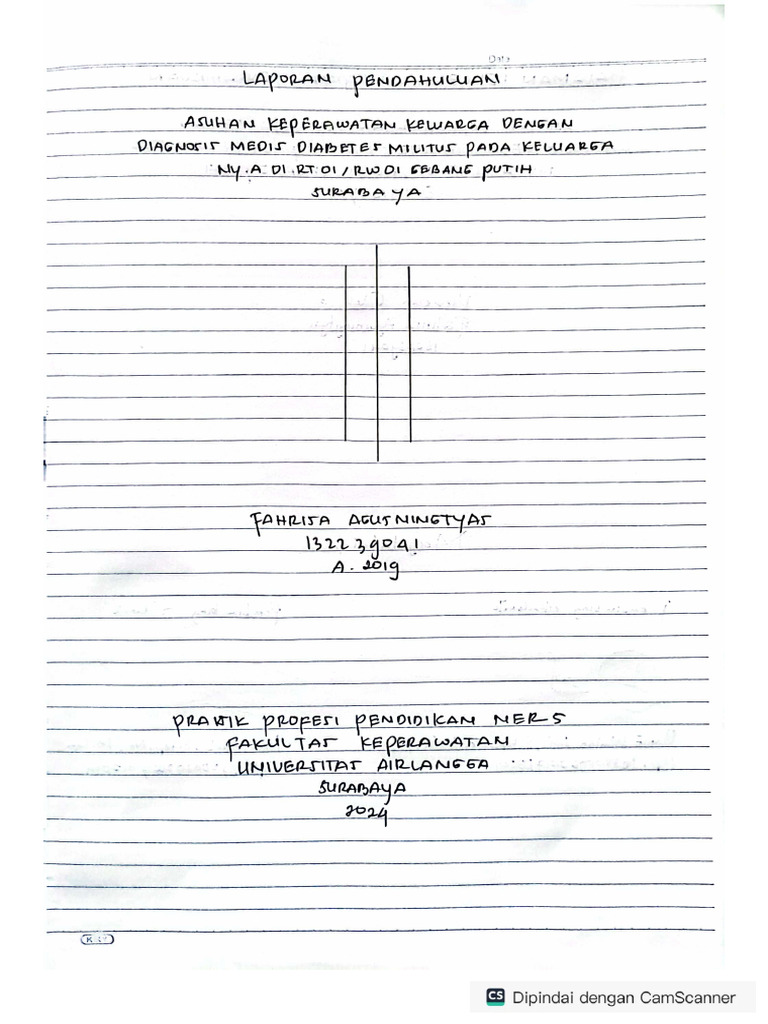 LAPORAN PENDAHULUAN
ASUHAN KEPERAWATAN KELUARGA DENGAN
DIAGNOSIS MEDIS DIABETES MILITUS PADA KELUARGA
NY. A DI RT 01 / RW 01 GEBANG PUTIH
SURABAYA
FAHRISA AGUSNINGTYAS
132239041
A. 2019
PRAKTIK PROFESI PENDIDIKAN NERS
FAKULTAS KEPERAWATAN
UNIVERSITAS AIRLANGGA
SURABAYA
2024
CS Dipindai dengan CamScanner